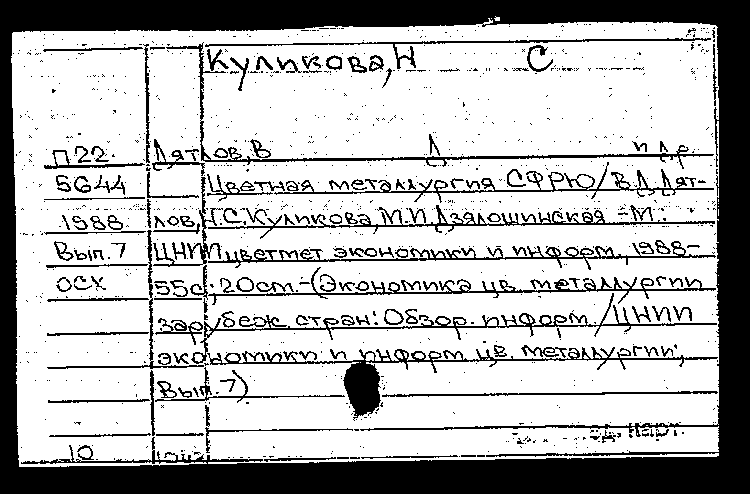 Куликова, Н С
П22. Дятлов, В Д и др
5644 Цветная металлургия СФРЮ/В.Д.Дят-
1988 лов, Н.С.Куликова, М.И.Дзялошинская =М.:
Вып.7 ЦНИИцветмет экономики и информ., 1988-
ОСХ 55с; 20см.-(Экономика цв. металлургии
зарубеж стран: Обзор. информ. /ЦНИИ
экономики и информ цв. металлургии;
Вып.7)
ед. карт.
10